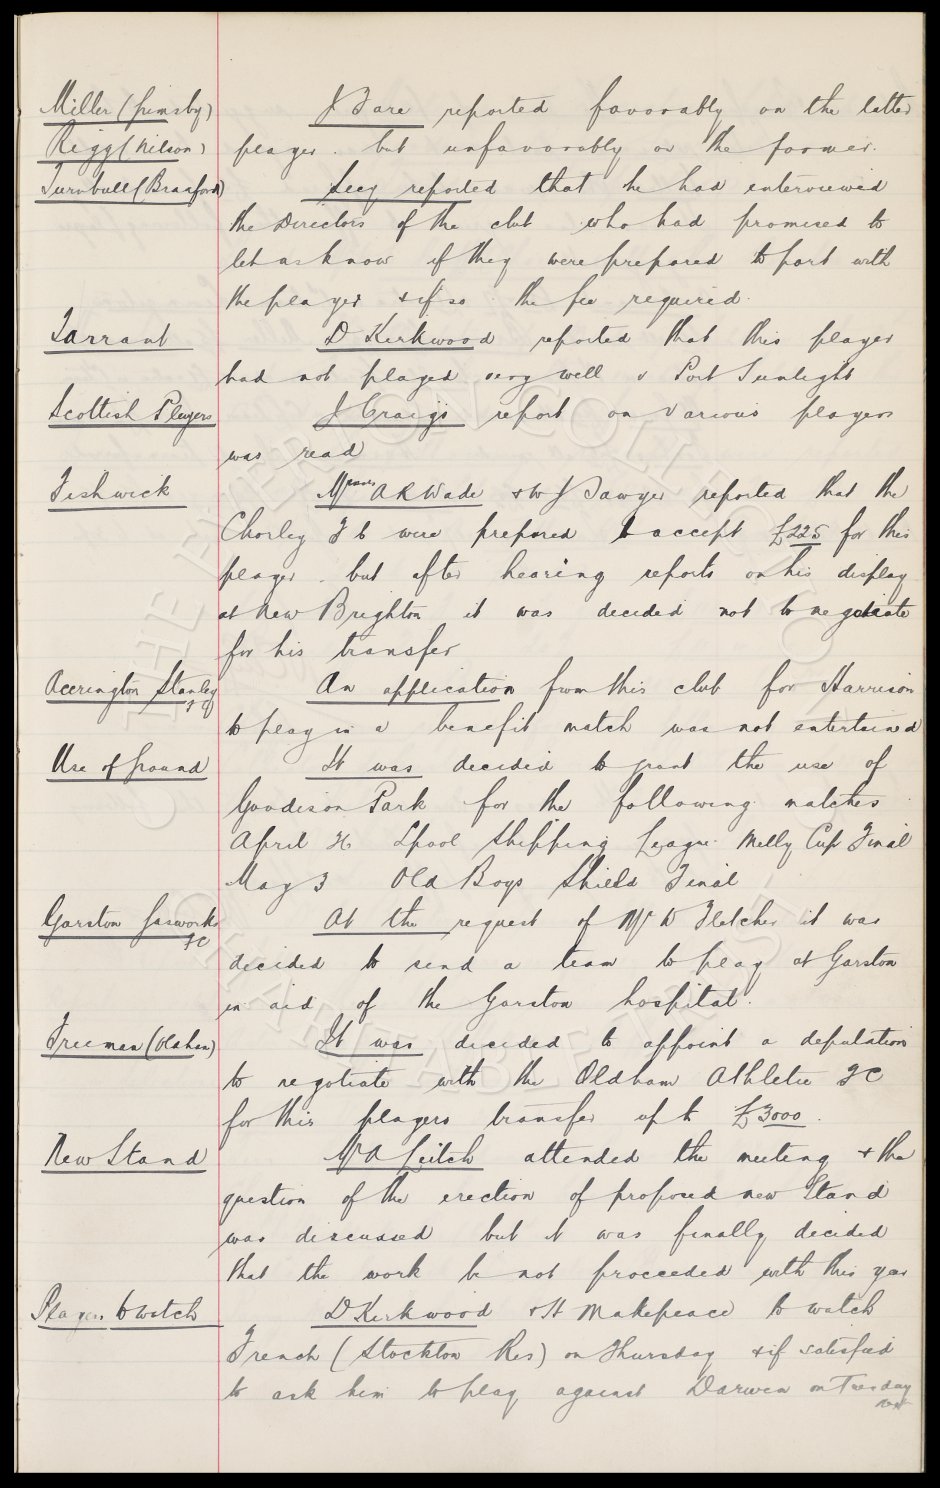 Miller (Grimsby) J Bare reported favorably on the latter
Rigg (Nelson) player. but unfavorably on the former.
Turnbull (Bradford) Secy reported that he had interviewed
the Directors of the club who had promised to
let us know if they were prepared to part with
the player & if so the fee required.
Tarrant D Kirkwood reported that this player
had not played very well v Port Sunlight
Scottish Players J Craigs report on various players
was read
Fishwick Messrs A R Wade & W J Sawyer reported that the
Chorley F C were prepared to accept £225 for this
player. but after hearing reports on his display
at New Brighton it was decided not to negotiate
for his transfer
Accrington Stanley FC An application from this club for Harrison
to play in a benefit match was not entertained
Use of ground It was decided to grant the use of
Goodison Park for the following matches
April 26 Lpool Shipping League. Melly Cup Final
May 3 Old Boys Shield Final
Garston Gasworks FC At the request of Mr D Fletcher it was
decided to send a team to play at Garston
in aid of the Garston hospital.
Freeman (Oldham) It was decided to appoint a deputation
to negotiate with the Oldham Athletic FC
for this players transfer up to £3000.
New Stand Mr A Leitch attended the meeting & the
question of the erection of proposed new Stand
was discussed but it was finally decided
that the work be not proceeded with this year
Players to watch D Kirkwood & H Makepeace to watch
French (Stockton Res) on Thursday & if satisfied
to ask him to play against Darwen on Tuesday
next
THE EVERTON COLLECTION
CHARITABLE TRUST